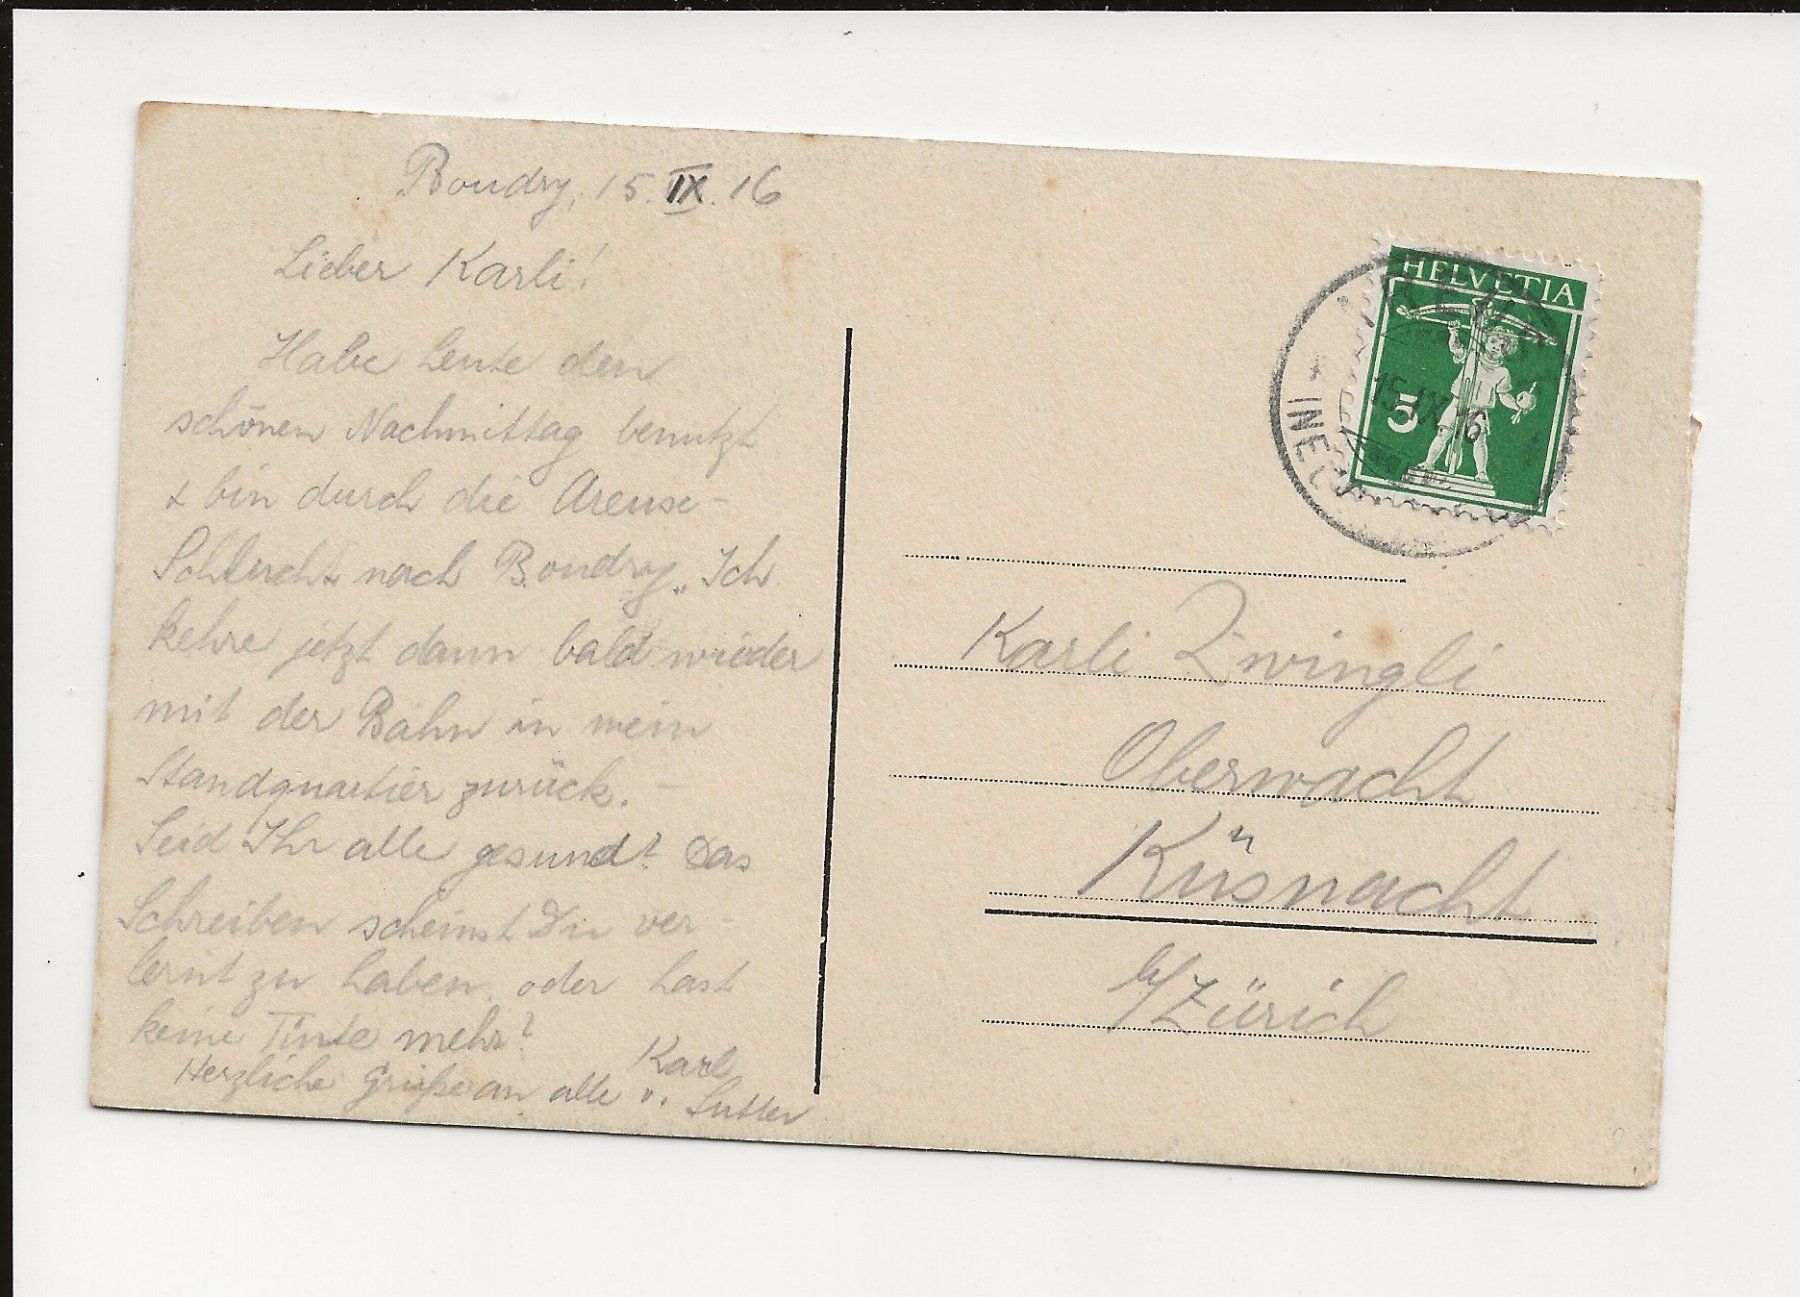 Boudry, 15. IX. 16
Lieber Karli!
Habe heute den
schönen Nachmittag benutzt
& bin durch die Areuse-
Schlucht nach Boudry. Ich
kehre jetzt dann bald wieder
mit der Bahn in mein
Standquartier zurück. –
Seid Ihr alle gesund? Das
Schreiben scheinst Du ver-
lernt zu haben oder hast
keine Tinte mehr?
Herzliche Grüße an alle v. Karl
Sutter
HELVETIA
5
15.IX.16
Karli Zwingli
Oberwacht
Küsnacht
b/Zürich